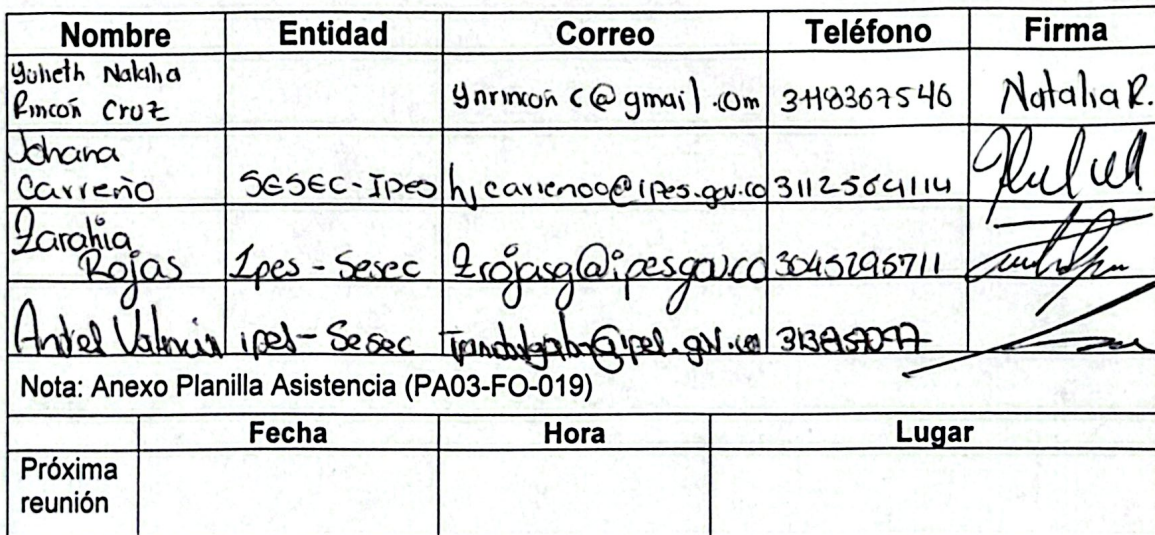 Nombre Entidad Correo Teléfono Firma
Yulieth Natalia
Rincón Cruz ynrincon c@gmail.com 3118367546 Natalia R.
Johana
Carreño SESEC-IPES hjcarrenoo@ipes.gov.co 3112564114
Zarahia
Rojas Ipes - Sesec zrojasg@ipes.gov.co 3045295711
Valencia ipes - Sesec
Nota: Anexo Planilla Asistencia (PA03-FO-019)
Fecha Hora Lugar
Próxima
reunión